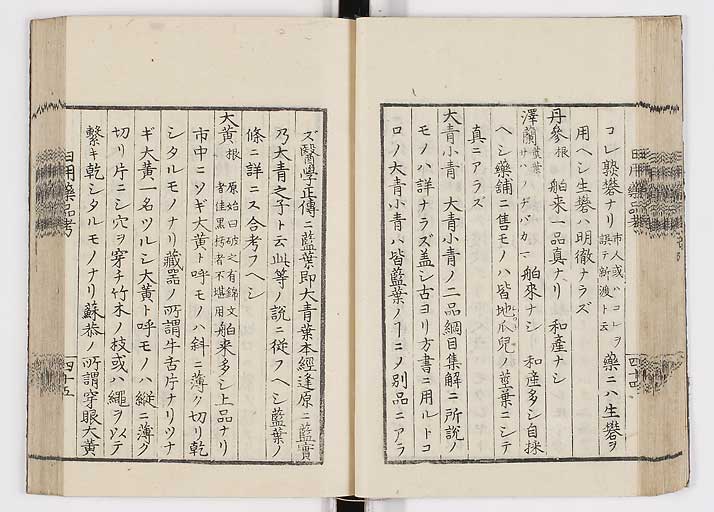 コレ熟礬ナリ 市人或ハコレヲ誤テ新渡ト云 藥ニハ生礬ヲ
用ヘシ生礬ハ明徹ナラズ
丹參 根 舶来一品真ナリ 和產ナシ
澤蘭 莖葉 サハノヂバカマ 舶來ナシ 和産多シ自採
ヘシ藥鋪ニ售モノハ皆地瓜兒ノ莖葉ニシテ
真ニアラズ
大青小青 大青小青ノ二品綱目集解ニ所説ノ
モノハ詳ナラズ盖シ古ヨリ方書ニ用ルトコ
ロノ大青小青ハ皆藍葉ノヿニノ別品ニアラ
四十四
日用藥品考
ズ醫學正傳ニ藍葉即大青葉本經逢原ニ藍實
乃大青之子ト云此等ノ説ニ従フヘシ藍葉ノ
條ニ詳ニス合考フヘシ
大黄 根 原始曰破之有錦文者佳黒朽者不堪用 舶来多シ上品ナリ
市中ニソギ大黄ト呼モノハ斜ニ薄ク切リ乾
シタルモノナリ藏器ノ所謂牛舌片ナリツナ
ギ大黄一名ツルシ大黄ト呼モノハ縦ニ薄ク
切リ片ニシ穴ヲ穿チ竹木ノ枝或ハ繩ヲ以テ
繫キ乾シタルモノナリ蘇恭ノ所謂穿眼大黄
日用藥品考
四十五